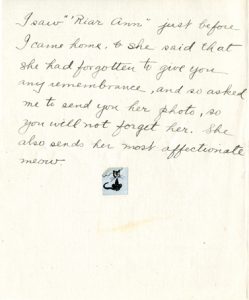 I saw "Riar Ann" just before
I came home, & she said that
she had forgotten to give you
any remembrance, and so asked
me to send you her photo, so
you will not forget her. She
also sends her most affectionate
meow.